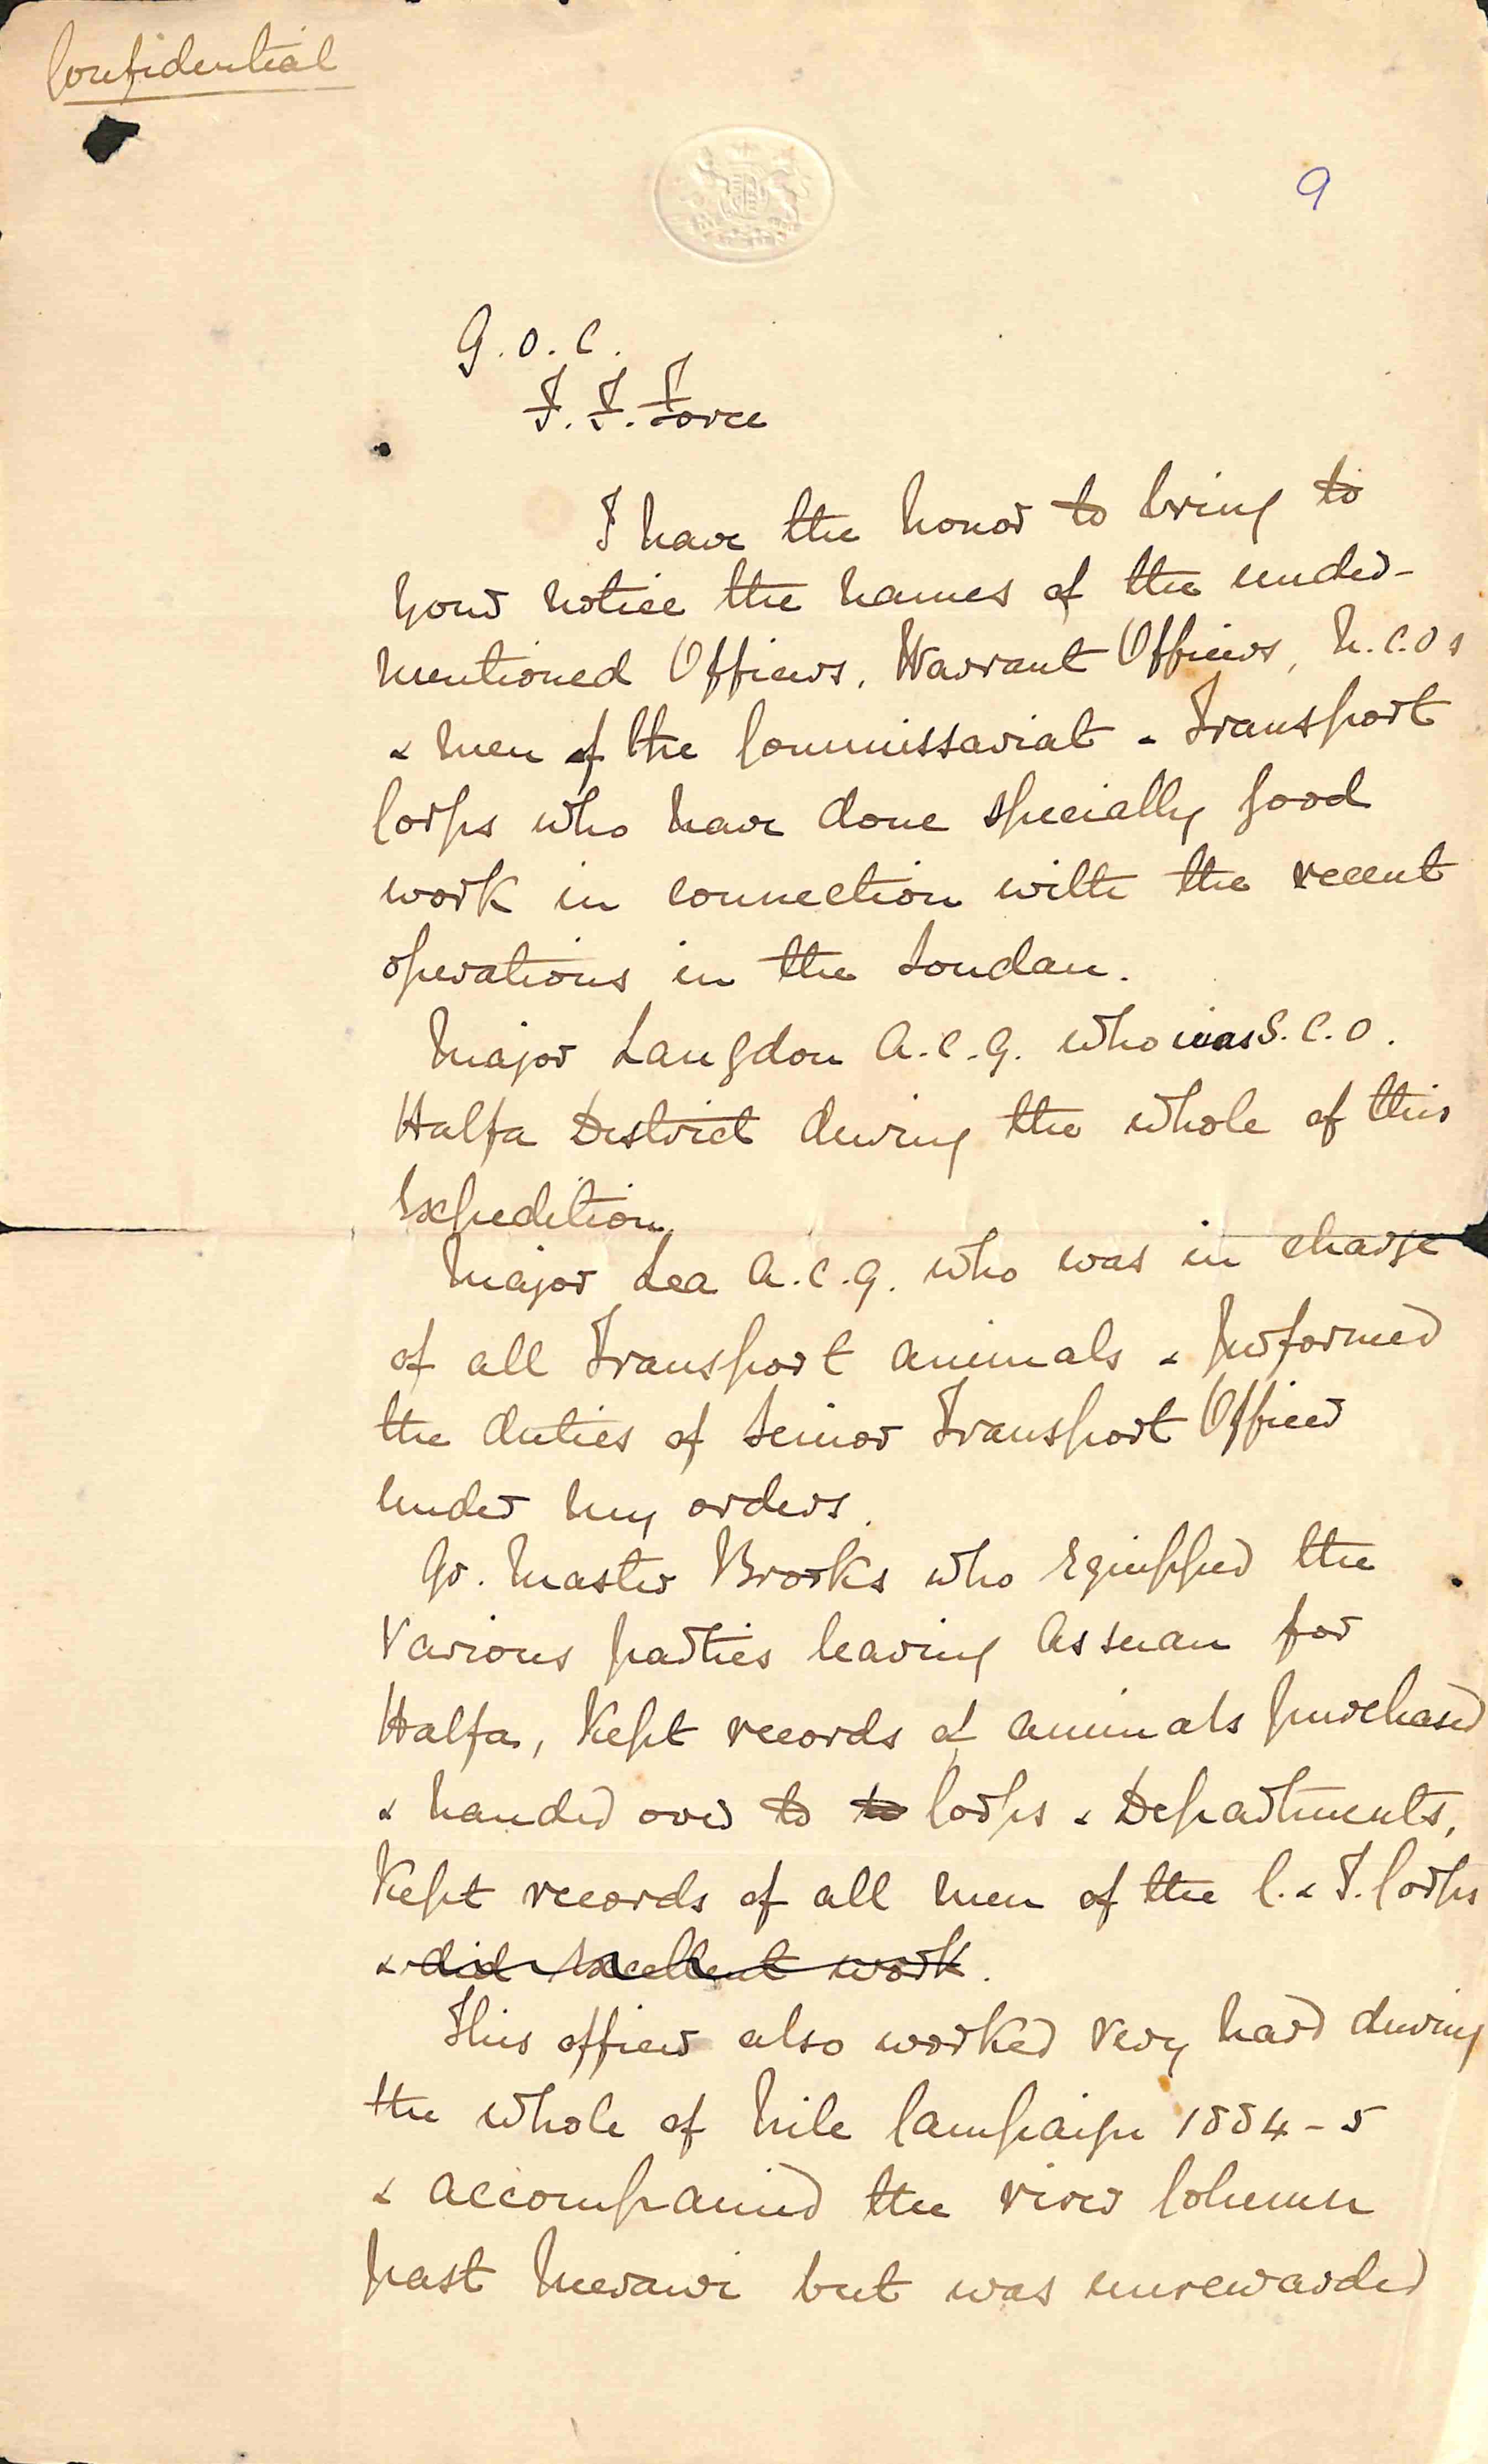 Confidential
9
G.O.C.
F.F. Force
I have the honor to bring to
your notice the names of the under-
mentioned Officers, Warrant Officers, N.C.Os
& men of the Commissariat & Transport
Corps who have done specially good
work in connection with the recent
operations in the Soudan.
Major Langdon A.C.G. who was S.C.O.
Halfa District during the whole of this
Expedition.
Major Lea A.C.G. who was in charge
of all Transport animals & performed
the duties of Senior Transport Officer
under my orders.
Qr. Master Brooks who equipped the
various parties leaving Assuan for
Halfa, kept records of animals purchased
& handed over to to Corps & Departments,
Kept records of all men of the C. & T. Corps
& did excellent work.
This officer also worked very hard during
the whole of Nile Campaign 1884-5
& accompanied the river Column
past Merawi but was unrewarded